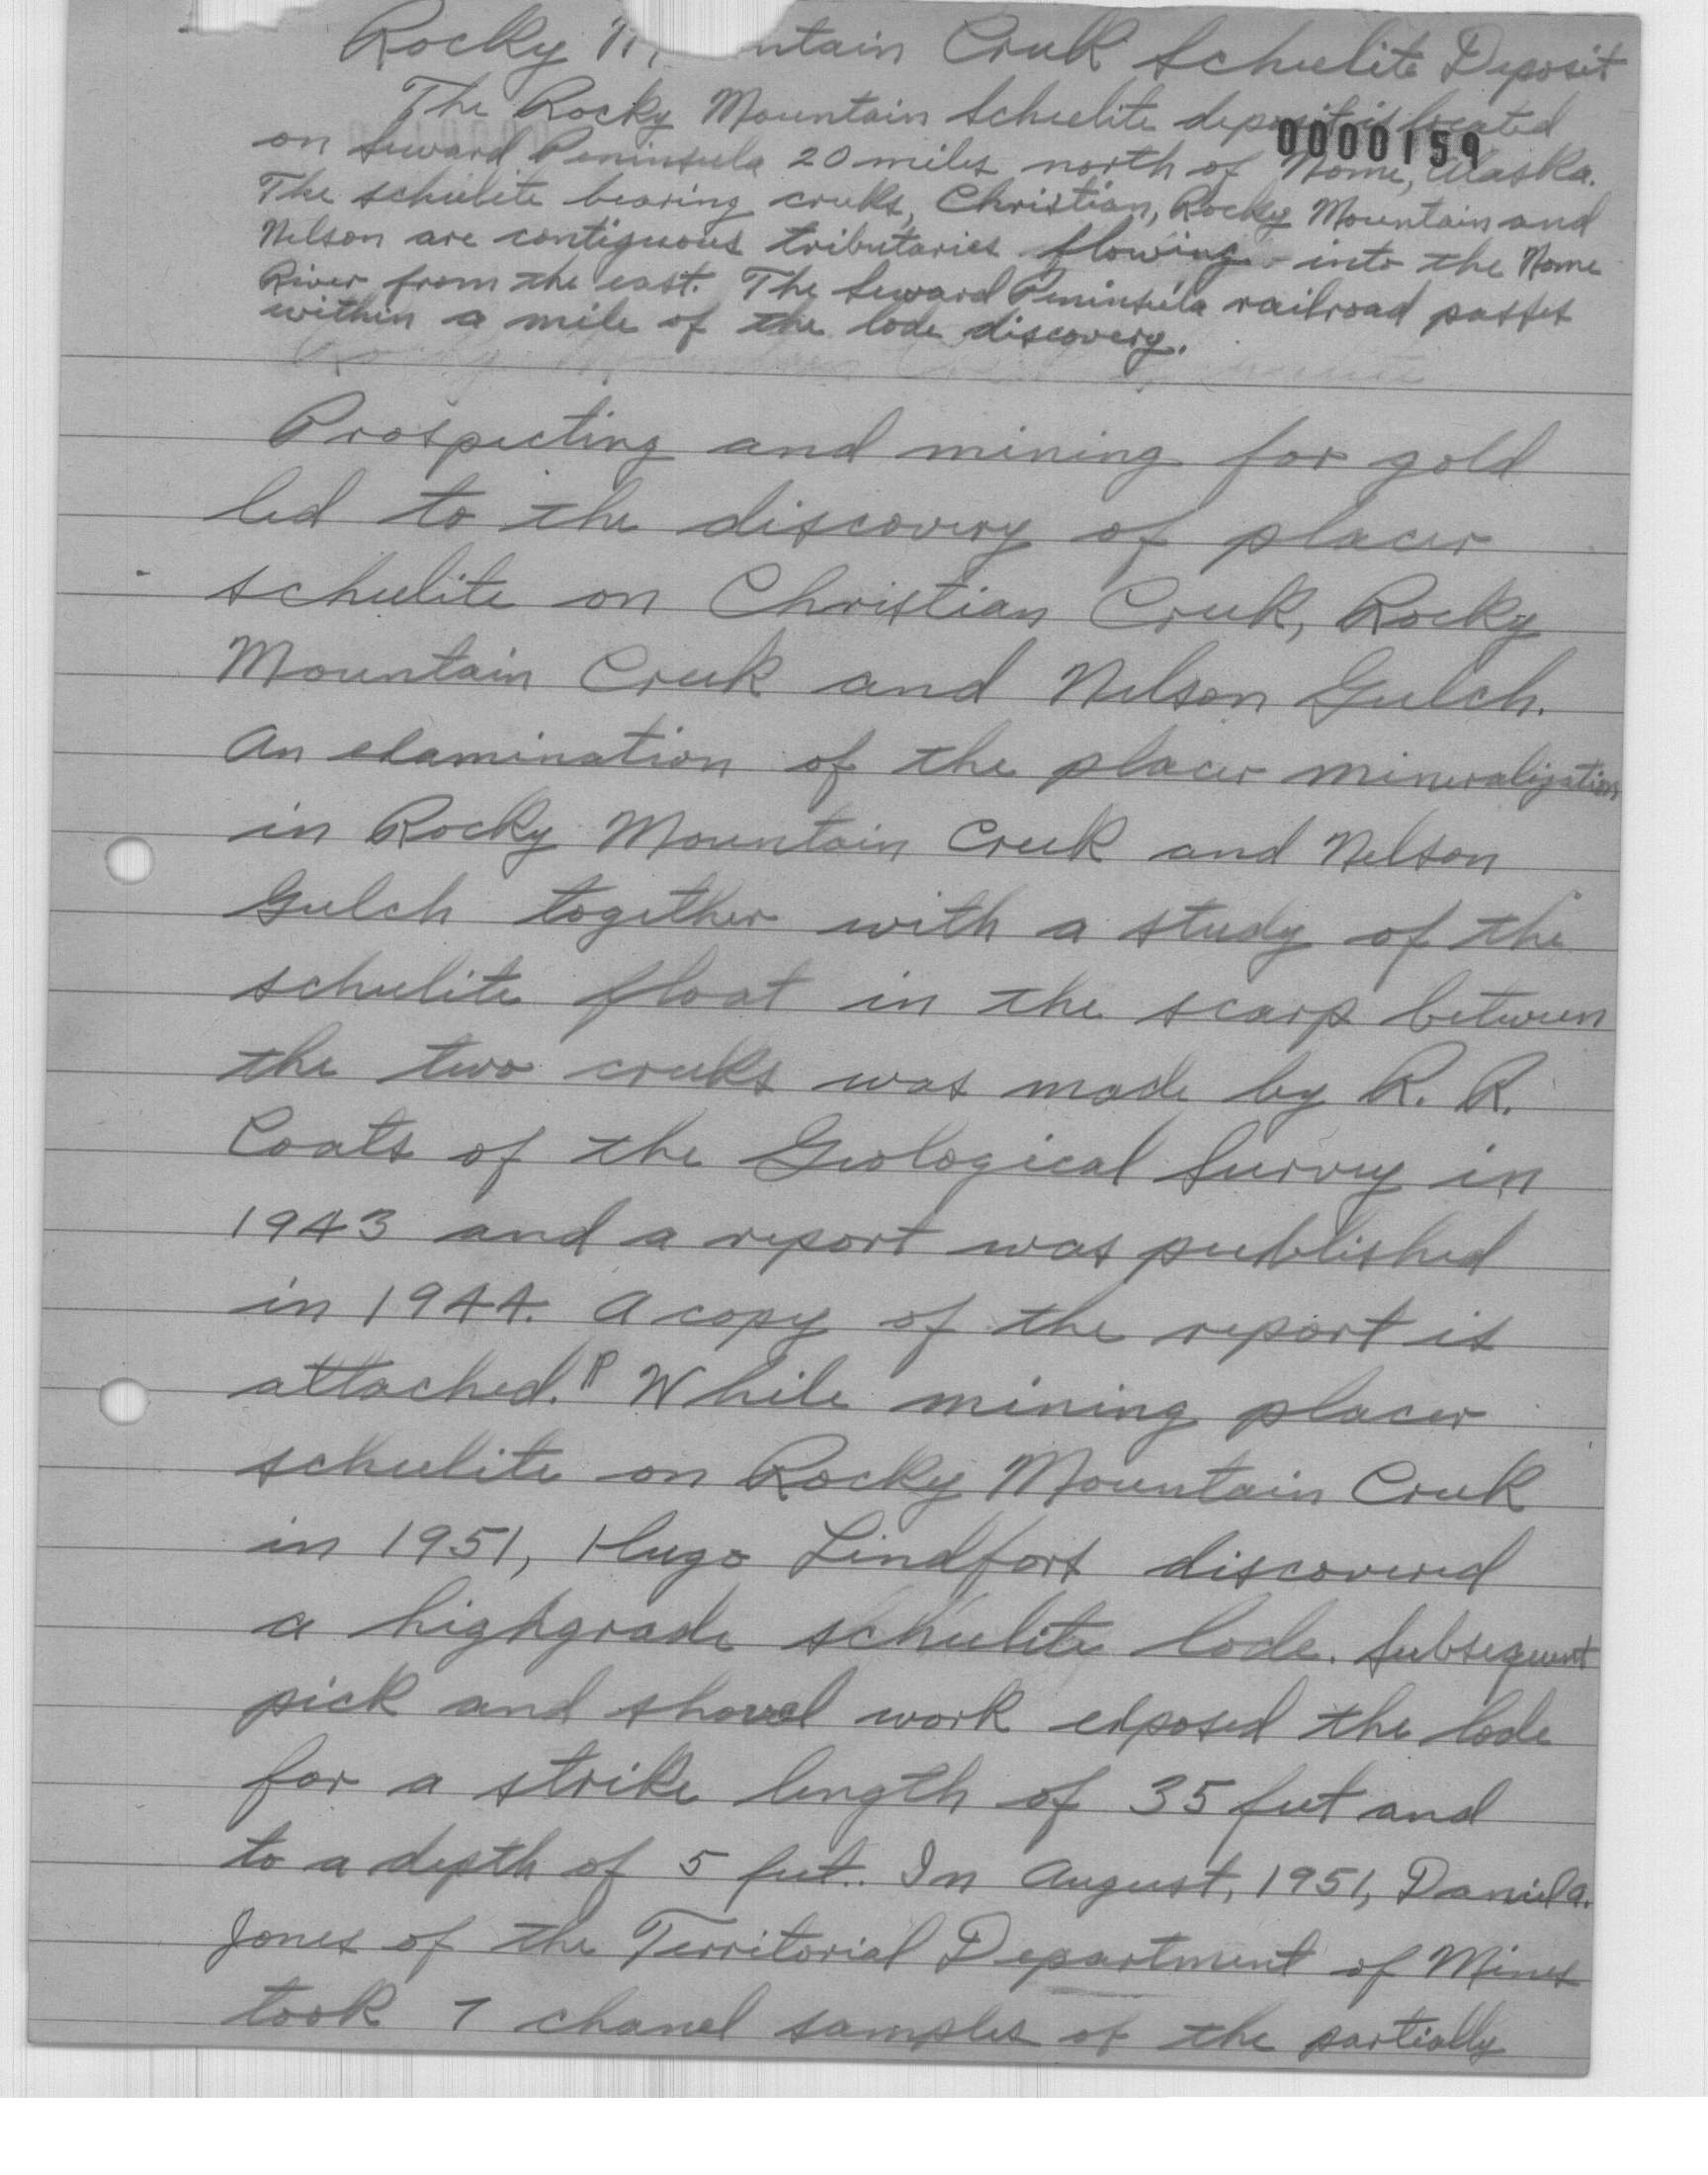 Rocky M ntain Creek Scheelite Deposit
The Rocky Mountain Scheelite deposit is located
0000159
on Seward Peninsula 20 miles north of Nome, Alaska.
The scheelite bearing creeks, Christian, Rocky Mountain and
Nelson are contiguous tributaries flowing into the Nome
River from the east. The Seward Peninsula railroad passes
within a mile of the lode discovery.
Prospecting and mining for gold
led to the discovery of placer
scheelite on Christian Creek, Rocky
Mountain Creek and Nelson Gulch.
An examination of the placer mineralization
in Rocky Mountain Creek and Nelson
Gulch together with a study of the
scheelite float in the scarp between
the two creeks was made by R. R.
Coats of the Geological Survey in
1943 and a report was published
in 1944. A copy of the report is
attached. ¶ While mining placer
scheelite on Rocky Mountain Creek
in 1951, Hugo Lindfors discovered
a highgrade scheelite lode. Subsequent
pick and shovel work exposed the lode
for a strike length of 35 feet and
to a depth of 5 feet. In August, 1951, Daniel A.
Jones of the Territorial Department of Mines
took 7 chanel samples of the partially